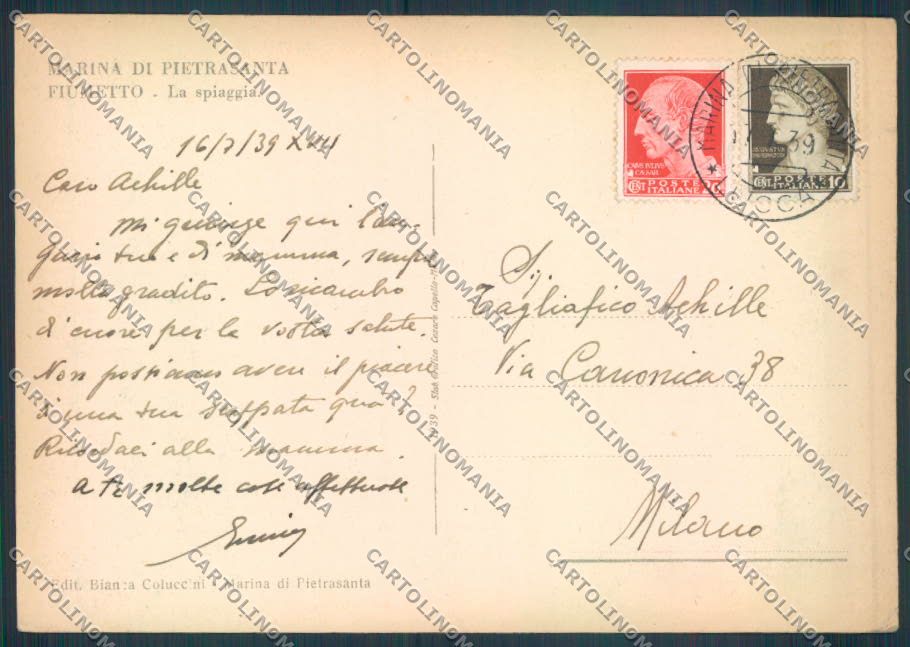 MARINA DI PIETRASANTA
FIUMETTO - La spiaggia.
16/7/39 XVII
Caro Achille
Mi giunge qui l'au-
gurio tuo e di mamma, sempre
molto gradito. Lo ricambio
di cuore per la vostra salute.
Non possiamo avere il piacere
di una tua scappata qua?
Ricordaci alla mamma.
a te molte cose affettuose
Edit. Bianca Coluccini - Marina di Pietrasanta
39 - Stab. Grafico Cesare Capello - M
CAIVS IVLIVS
CAESAR
CENT. POSTE
ITALIANE
CENT. POSTE
ITALIANE 10
MARINA DI PIETRASANTA
39
* LUCCA
Sig.
Tagliafico Achille
Via Canonica 38
Milano
CARTOLINOMANIA